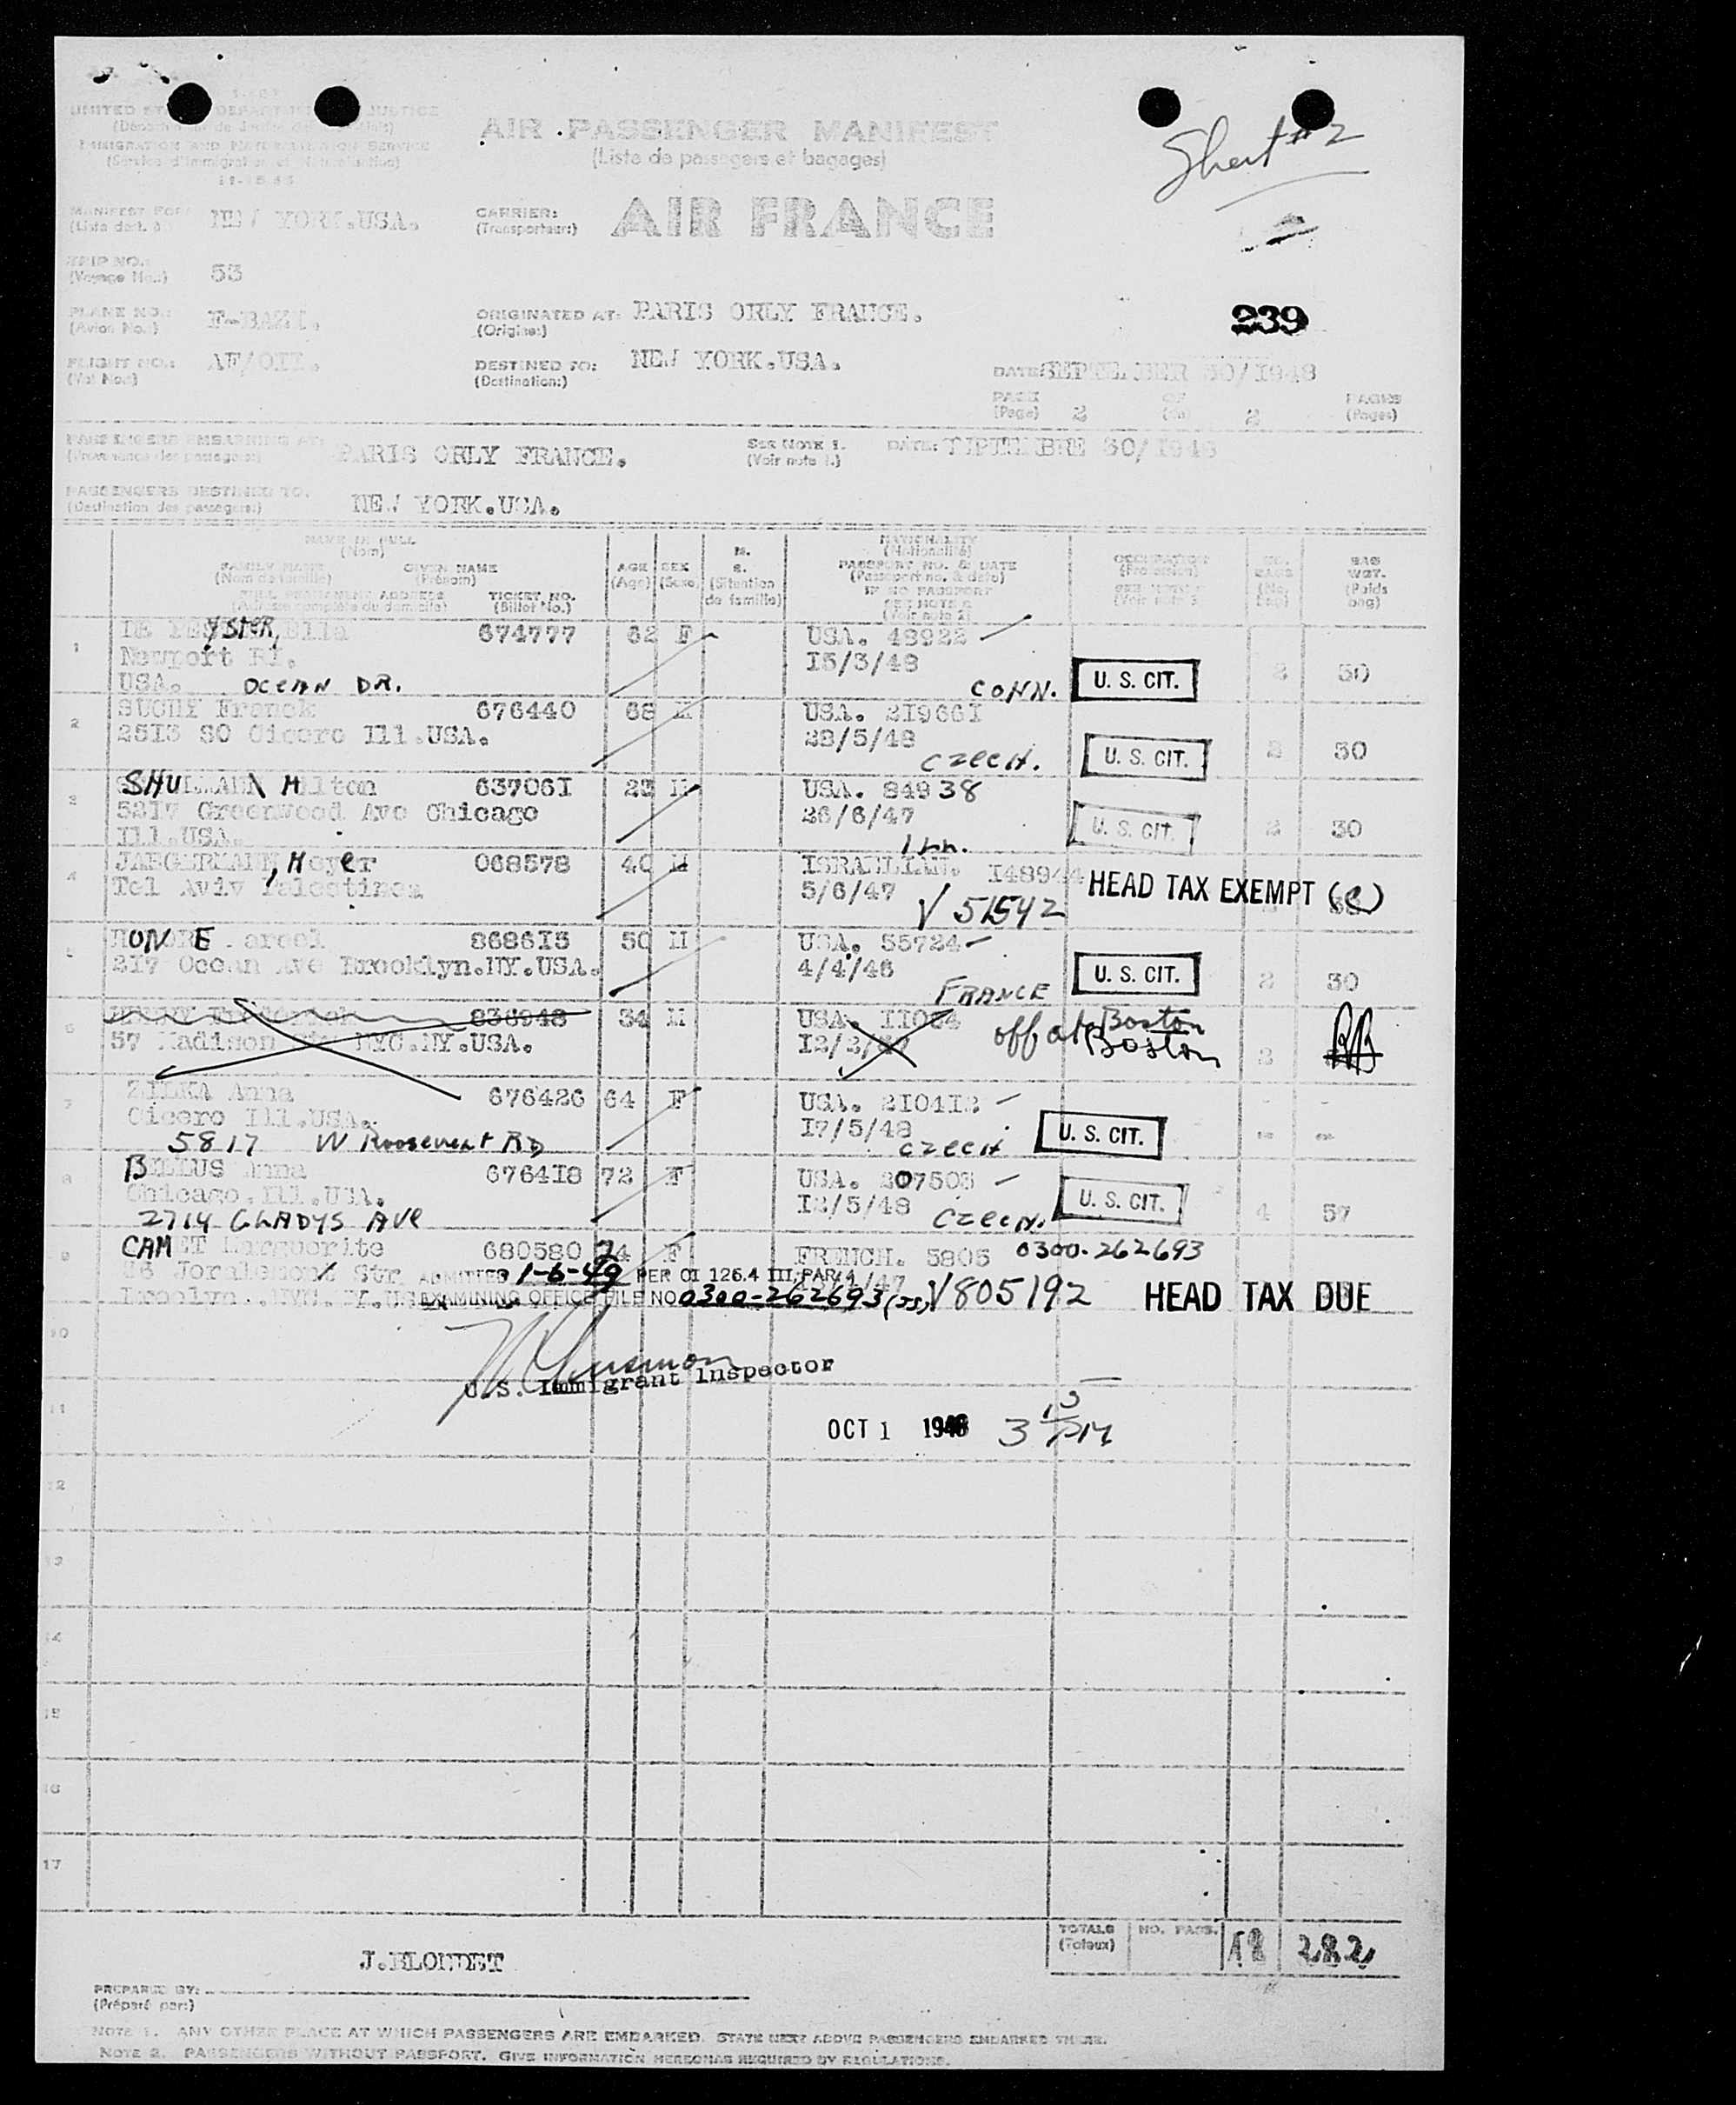 AIR PASSENGER MANIFEST
(Liste de passagers et bagages)
Sheet #2
UNITED DEPARTMENT JUSTICE
IMMIGRATION AND NATURALIZATION SERVICE
MANIFEST FOR: NEW YORK.USA.
CARRIER: AIR FRANCE
(Transporteur:)
TRIP NO.: 53
(Voyage No.:)
239
PLANE NO.:
(Avion No.:)
ORIGINATED AT: PARIS ORLY FRANCE.
(Origine:)
FLIGHT NO.: AF/
(Vol No.:)
DESTINED TO: NEW YORK.USA.
(Destination:)
DATE: SEPTEMBER 30/1948
PAGE 2 OF 2 PAGES
(Page) (de) (Pages)
PASSENGERS EMBARKING AT: PARIS ORLY FRANCE.
SEE NOTE 1.
(Voir note 1.)
DATE: 30/1948
PASSENGERS DESTINED TO: NEW YORK.USA.
(Destination des passagers:)
NAME IN FULL
(Nom)
FAMILY NAME GIVEN NAME
(Nom de famille) (Prénom)
FULL PERMANENT ADDRESS TICKET NO.
(Adresse complète du domicile) (Billet No.)
AGE
(Age)
SEX
(Sexe)
M.
S.
(Sitution
de famille)
NATIONALITY
(Nationalité)
PASSPORT NO. & DATE
(Passeport no. & date)
IF NO PASSPORT
SEE NOTE 2
(Voir note 2)
OCCUPATION
(Profession)
BAG
WGT.
(Poids
bag)
1 YSTER, Ella 674777 62 F USA. 48922
Newport RI. 15/3/48 2 50
USA. OCEAN DR. CONN. U. S. CIT.
2 SUCHY Franck 676440 68 M USA. 219661
2513 SO Cicero Ill.USA. 28/5/48 2 30
CZECH. U. S. CIT.
3 SHULMAN Milton 637061 23 M USA. 84938
5217 Greenwood Ave Chicago 26/6/47 U. S. CIT. 2 30
Ill.USA.
4 Meyer 068578 40 M ISRAELIAN. 148944
Tel Aviv Palestines 5/6/47 HEAD TAX EXEMPT (e)
V 51542
5 HONORE 868613 50 M USA. 55724
217 Ocean Ave Brooklyn.NY.USA. 4/4/46 U. S. CIT. 2 30
FRANCE
6 836948 34 M USA. off at Boston
57 Madison NYC.NY.USA. 12/2/47 Boston 2
7 ZILKA Anna 676426 64 F USA. 210412
Cicero Ill.USA. 17/5/48 U. S. CIT.
5817 W Roosevelt RD CZECH
8 Anna 676418 72 F USA. 207503
Chicago.Ill.USA. 12/5/48 U. S. CIT. 4 57
2714 GLADYS AVE CZECH.
9 CAMET Marguerite 680580 74 F FRENCH. 5805 0300-262693
Joralemon Str ADMITTED 1-6-49 PER OI 126.4 III, PAR. 4
EXAMINING OFFICE FILE NO 0300-262693 (JS) V805192 HEAD TAX DUE
10
U.S. Immigrant Inspector
11
OCT 1 1948 3 15 PM
12
13
14
15
16
17
TOTALS NO. PASS. 18 282
(Totaux)
J.BLONDET
PREPARED BY:
(Préparé par:)
NOTE 1. ANY OTHER PLACE AT WHICH PASSENGERS ARE EMBARKED. STATE NEXT ABOVE PASSENGERS EMBARKED THERE.
NOTE 2. PASSENGERS WITHOUT PASSPORT. GIVE INFORMATION HEREON AS REQUIRED BY REGULATIONS.